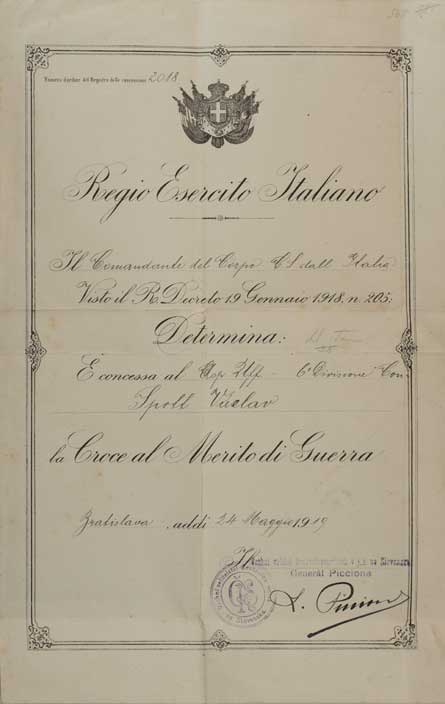 Numero d'ordine del Registro delle concessioni 2018
Regio Esercito Italiano
Il Comandante del Corpo C.S. dall' Italia
Visto il R. Decreto 19 Gennaio 1918, n. 205;
Determina:
È concessa al Uff. 6ª Divisione
Spoll Václav
la Croce al Merito di Guerra
Bratislava, addì 24 Maggio 1919
Il
na Slovensku
Generál Piccione
L. Piccione